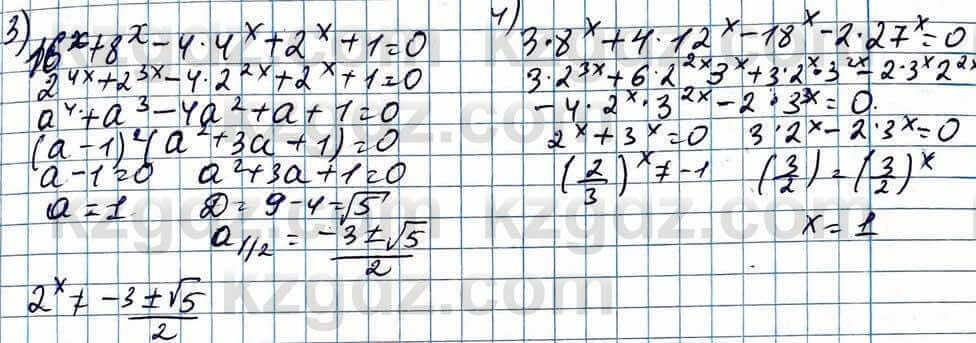 3) 16^x + 8^x - 4·4^x + 2^x + 1 = 0
2^{4x} + 2^{3x} - 4·2^{2x} + 2^x + 1 = 0
a^4 + a^3 - 4a^2 + a + 1 = 0
(a - 1)^2 (a^2 + 3a + 1) = 0
a - 1 = 0 a^2 + 3a + 1 = 0
a = 1 D = 9 - 4 = √5
a_{1/2} = \frac{-3 ± √5}{2}
2^x ≠ \frac{-3 ± √5}{2}
4) 3·8^x + 4·12^x - 18^x - 2·27^x = 0
3·2^{3x} + 6·2^{2x} 3^x + 3·2^x·3^{2x} - 2·3^x 2^{2x}
- 4·2^x·3^{2x} - 2·3^{3x} = 0.
2^x + 3^x = 0 3·2^x - 2·3^x = 0
(\frac{2}{3})^x ≠ -1 (\frac{3}{2}) = (\frac{3}{2})^x
x = 1
kzgdz.com
kzgdz.com
kzgdz.com